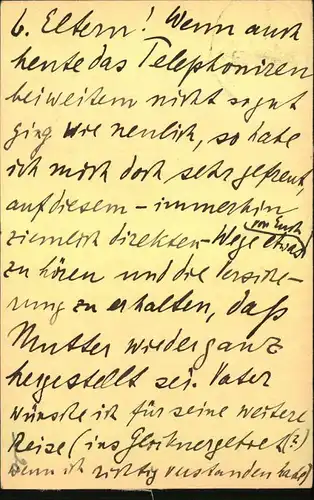 L. Eltern! Wenn auch
heute das Telephoniren
beiweitem nicht so gut
ging wie neulich, so habe
ich mich doch sehr gefreut,
auf diesem – immerhin
ziemlich direkten – Wege etwas von Euch
zu hören und die Versiche-
rung zu erhalten, daß
Mutter wieder ganz
hergestellt sei. Vater
wünsche ich für seine weitere
Reise (ins Glocknergebiet (?)
wenn ich richtig verstanden habe)